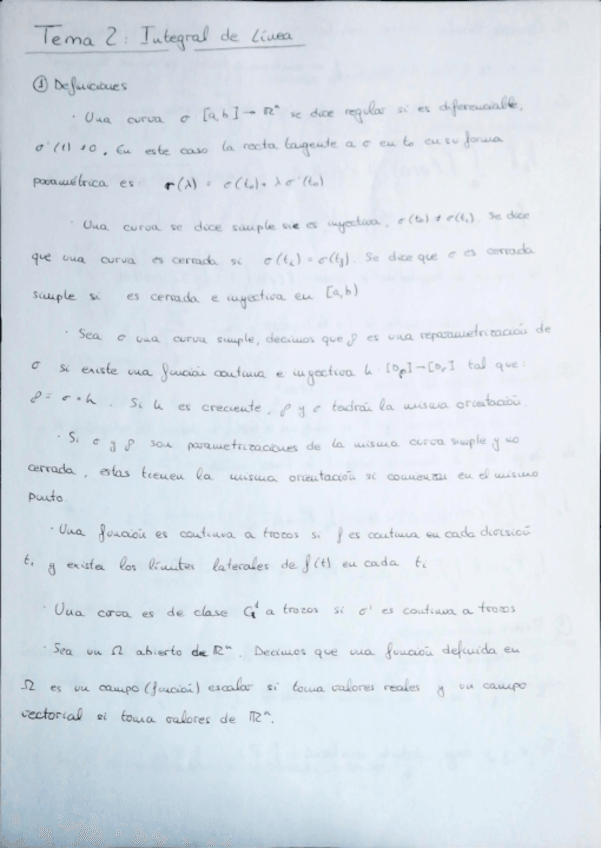 Tema 2: Integral de línea
① Definiciones
· Una curva σ [a,b] → ℝⁿ se dice regular si es diferenciable,
σ'(t) ≠ 0. En este caso la recta tangente a σ en t₀ en su forma
paramétrica es r(λ) = σ(t₀) + λ σ'(t₀)
· Una curva se dice simple si es inyectiva, σ(t₀) ≠ σ(t₁). Se dice
que una curva es cerrada si σ(tᵢ) = σ(tⱼ). Se dice que σ es cerrada
simple si es cerrada e inyectiva en [a,b)
· Sea σ una curva simple, decimos que ρ es una reparametrización de
σ si existe una función continua e inyectiva h: [Dρ] → [Dσ] tal que:
ρ = σ ∘ h. Si h es creciente, ρ y σ tendrán la misma orientación.
· Si σ y ρ son parametrizaciones de la misma curva simple y no
cerrada, estas tienen la misma orientación si comienzan en el mismo
punto.
· Una función es continua a trozos si f es continua en cada división
tᵢ y existen los límites laterales de f(t) en cada tᵢ
· Una curva es de clase C¹ a trozos si σ' es continua a trozos
· Sea un Ω abierto de ℝⁿ. Decimos que una función definida en
Ω es un campo (función) escalar si toma valores reales y un campo
vectorial si toma valores de ℝⁿ.